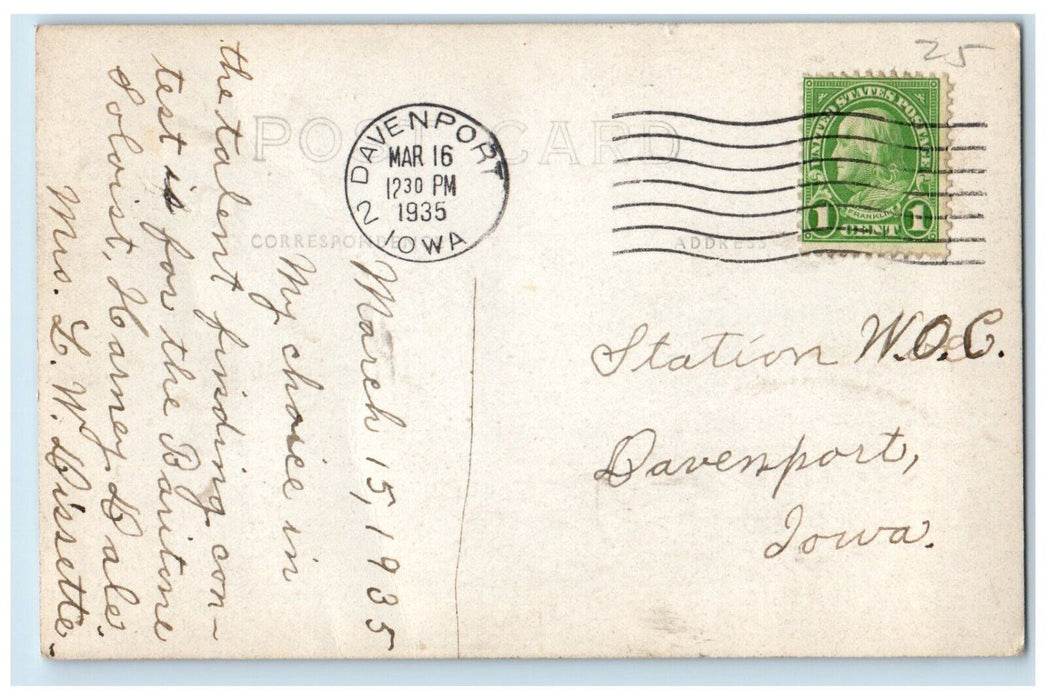 25
POST CARD
DAVENPORT
MAR 16
1230 PM
1935
2 IOWA
UNITED STATES POSTAGE
FRANKLIN
1 CENT 1
CORRESPONDENCE
ADDRESS
March 15, 1935
My choice in
the talent finding con-
test is for the Baritone
Soloist, Harney Hale.
Mrs. L. W. Lissette.
Station W.O.C.
Davenport,
Iowa.